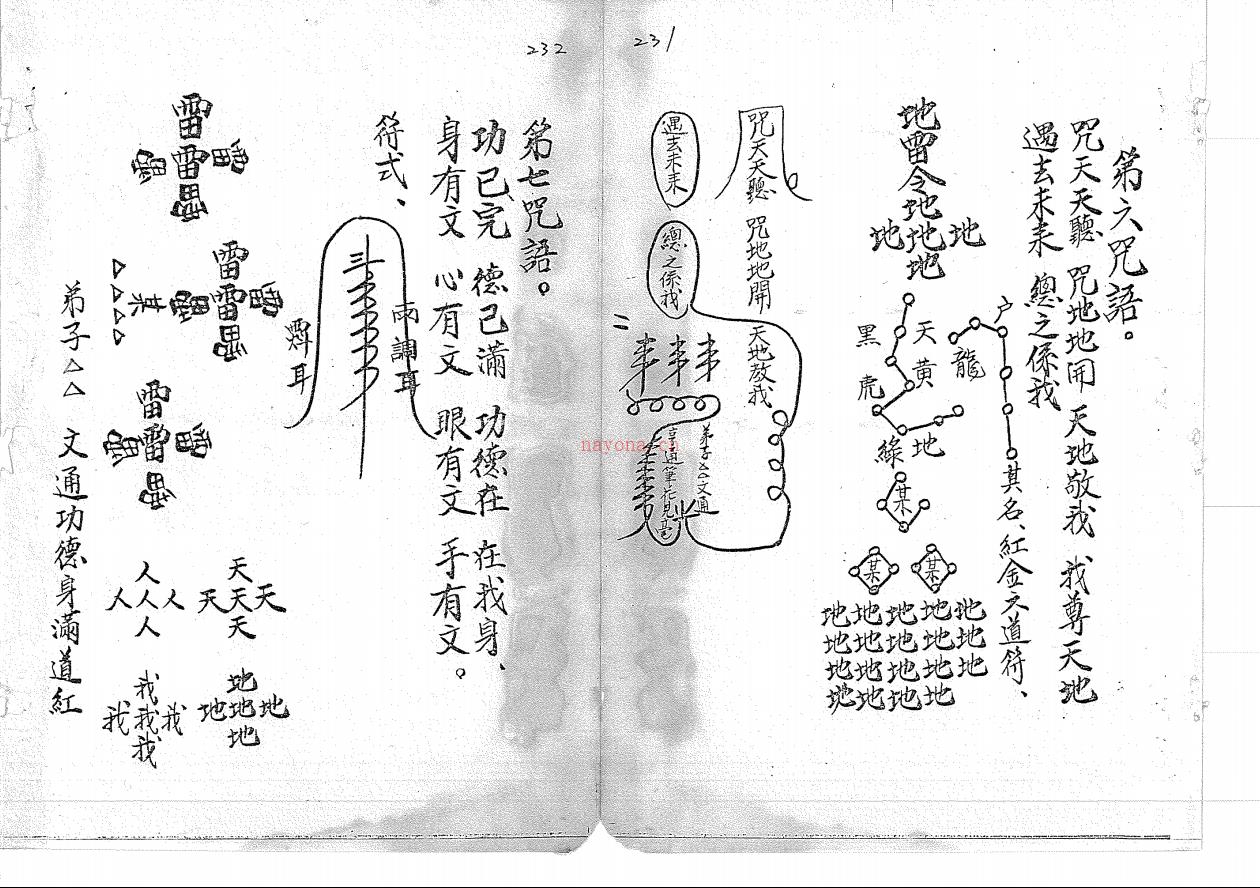 231
第六咒語。
咒天天聽 咒地地開 天地敬我 我尊天地
遇去未來 總之係我
其名、紅金文道符、
地雷令地
地地地
地
天 黃 龍
黑 虎
綠 地
某
某 某
地地地地地
地地地地地
地地地地地
地地地地
咒天天聽 咒地地開 天地敬我
遇去未來 總之係我
弟子△△文通
nayona.cn
232
第七咒語。
功已完 德已滿 功德在 在我身、
身有文 心有文 眼有文 手有文。
符式、
雷
雷
雷
雷
△△△△
某
雷
雷
天
天天天
天
地
地地地
地
人
人人人
人
我
我我我
我
弟子△△ 文通功德身滿道紅